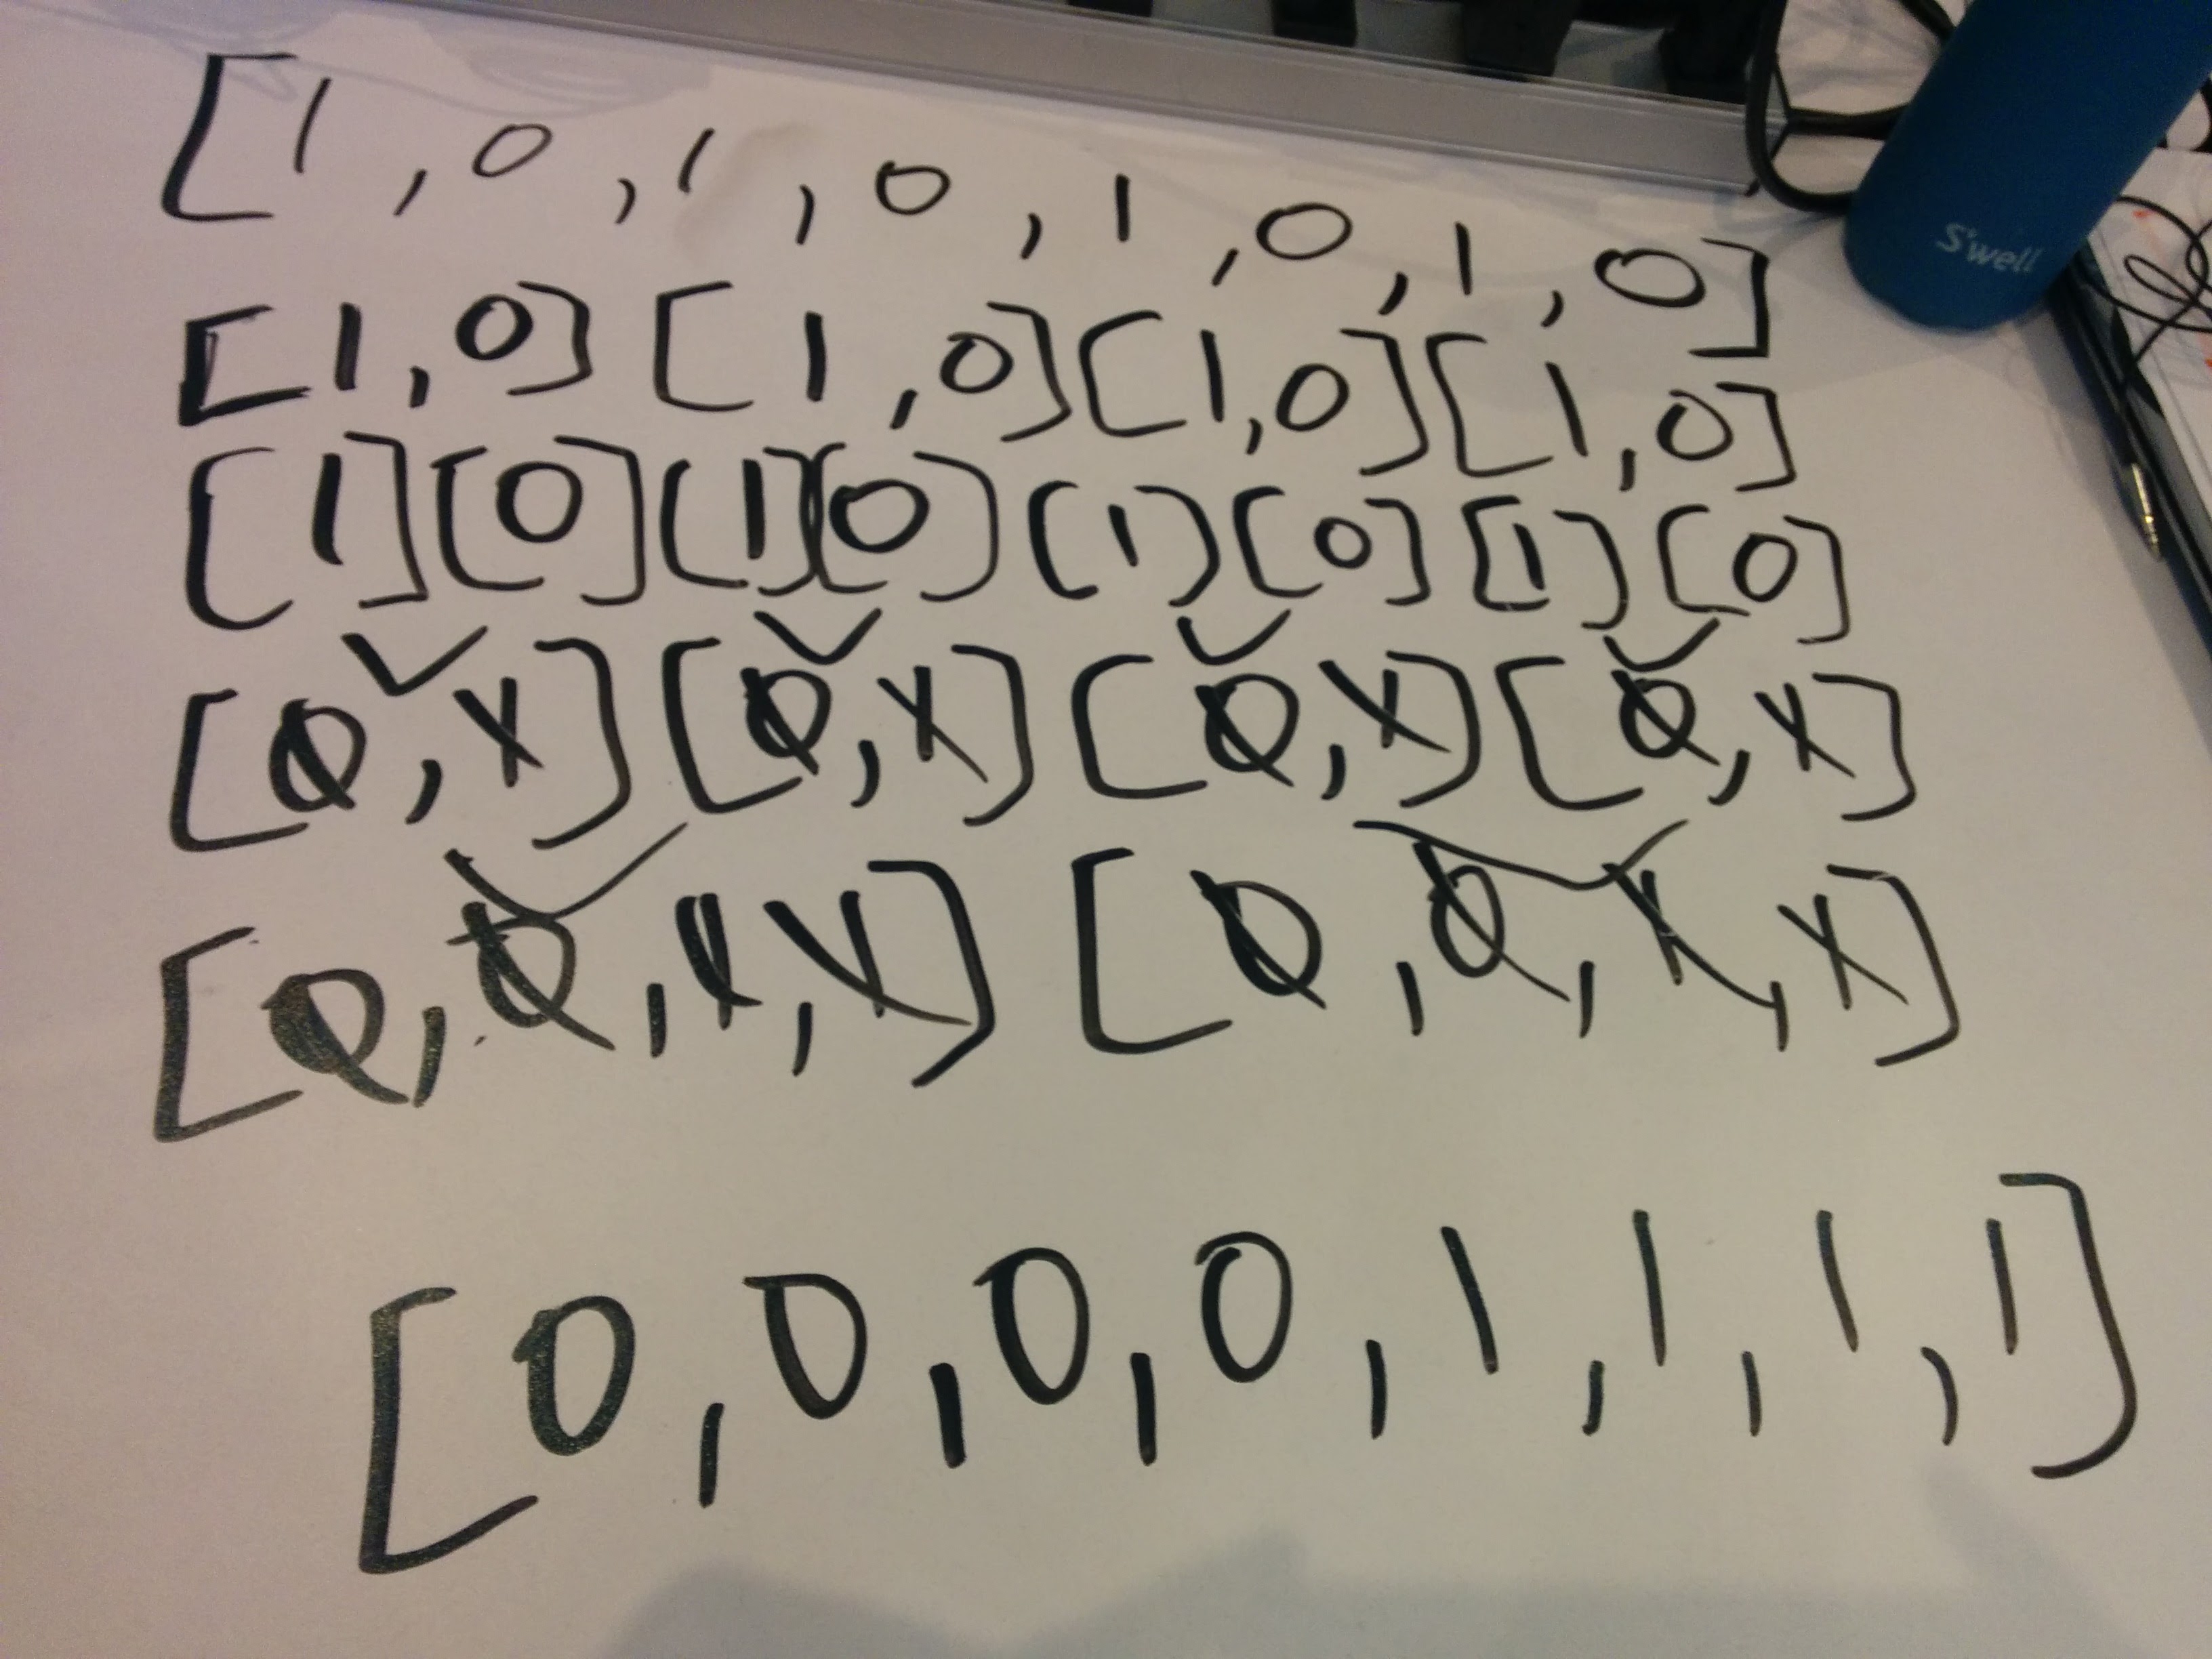 [1, 0, 1, 0, 1, 0, 1, 0]
S'well
[1, 0] [1, 0] [1, 0] [1, 0]
[1] [0] [1] [0] [1] [0] [1] [0]
[0, 1] [0, 1] [0, 1] [0, 1]
[0, 0, 1, 1] [0, 0, 1, 1]
[0, 0, 0, 0, 1, 1, 1, 1]